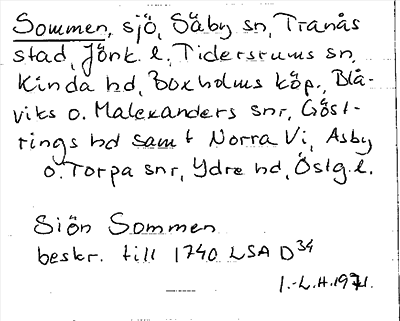 Sommen, sjö, Säby sn, Tranås
stad, Jönk. l., Tidersrums sn,
Kinda hd, Boxholms köp., Blå-
viks o. Malexanders snr, Göst-
rings hd samt Norra Vi, Asby
o. Torpa snr, Ydre hd, Östg. l.
Siön Sommen
beskr. till 1740 LSA D34
I.-L.H. 1971.